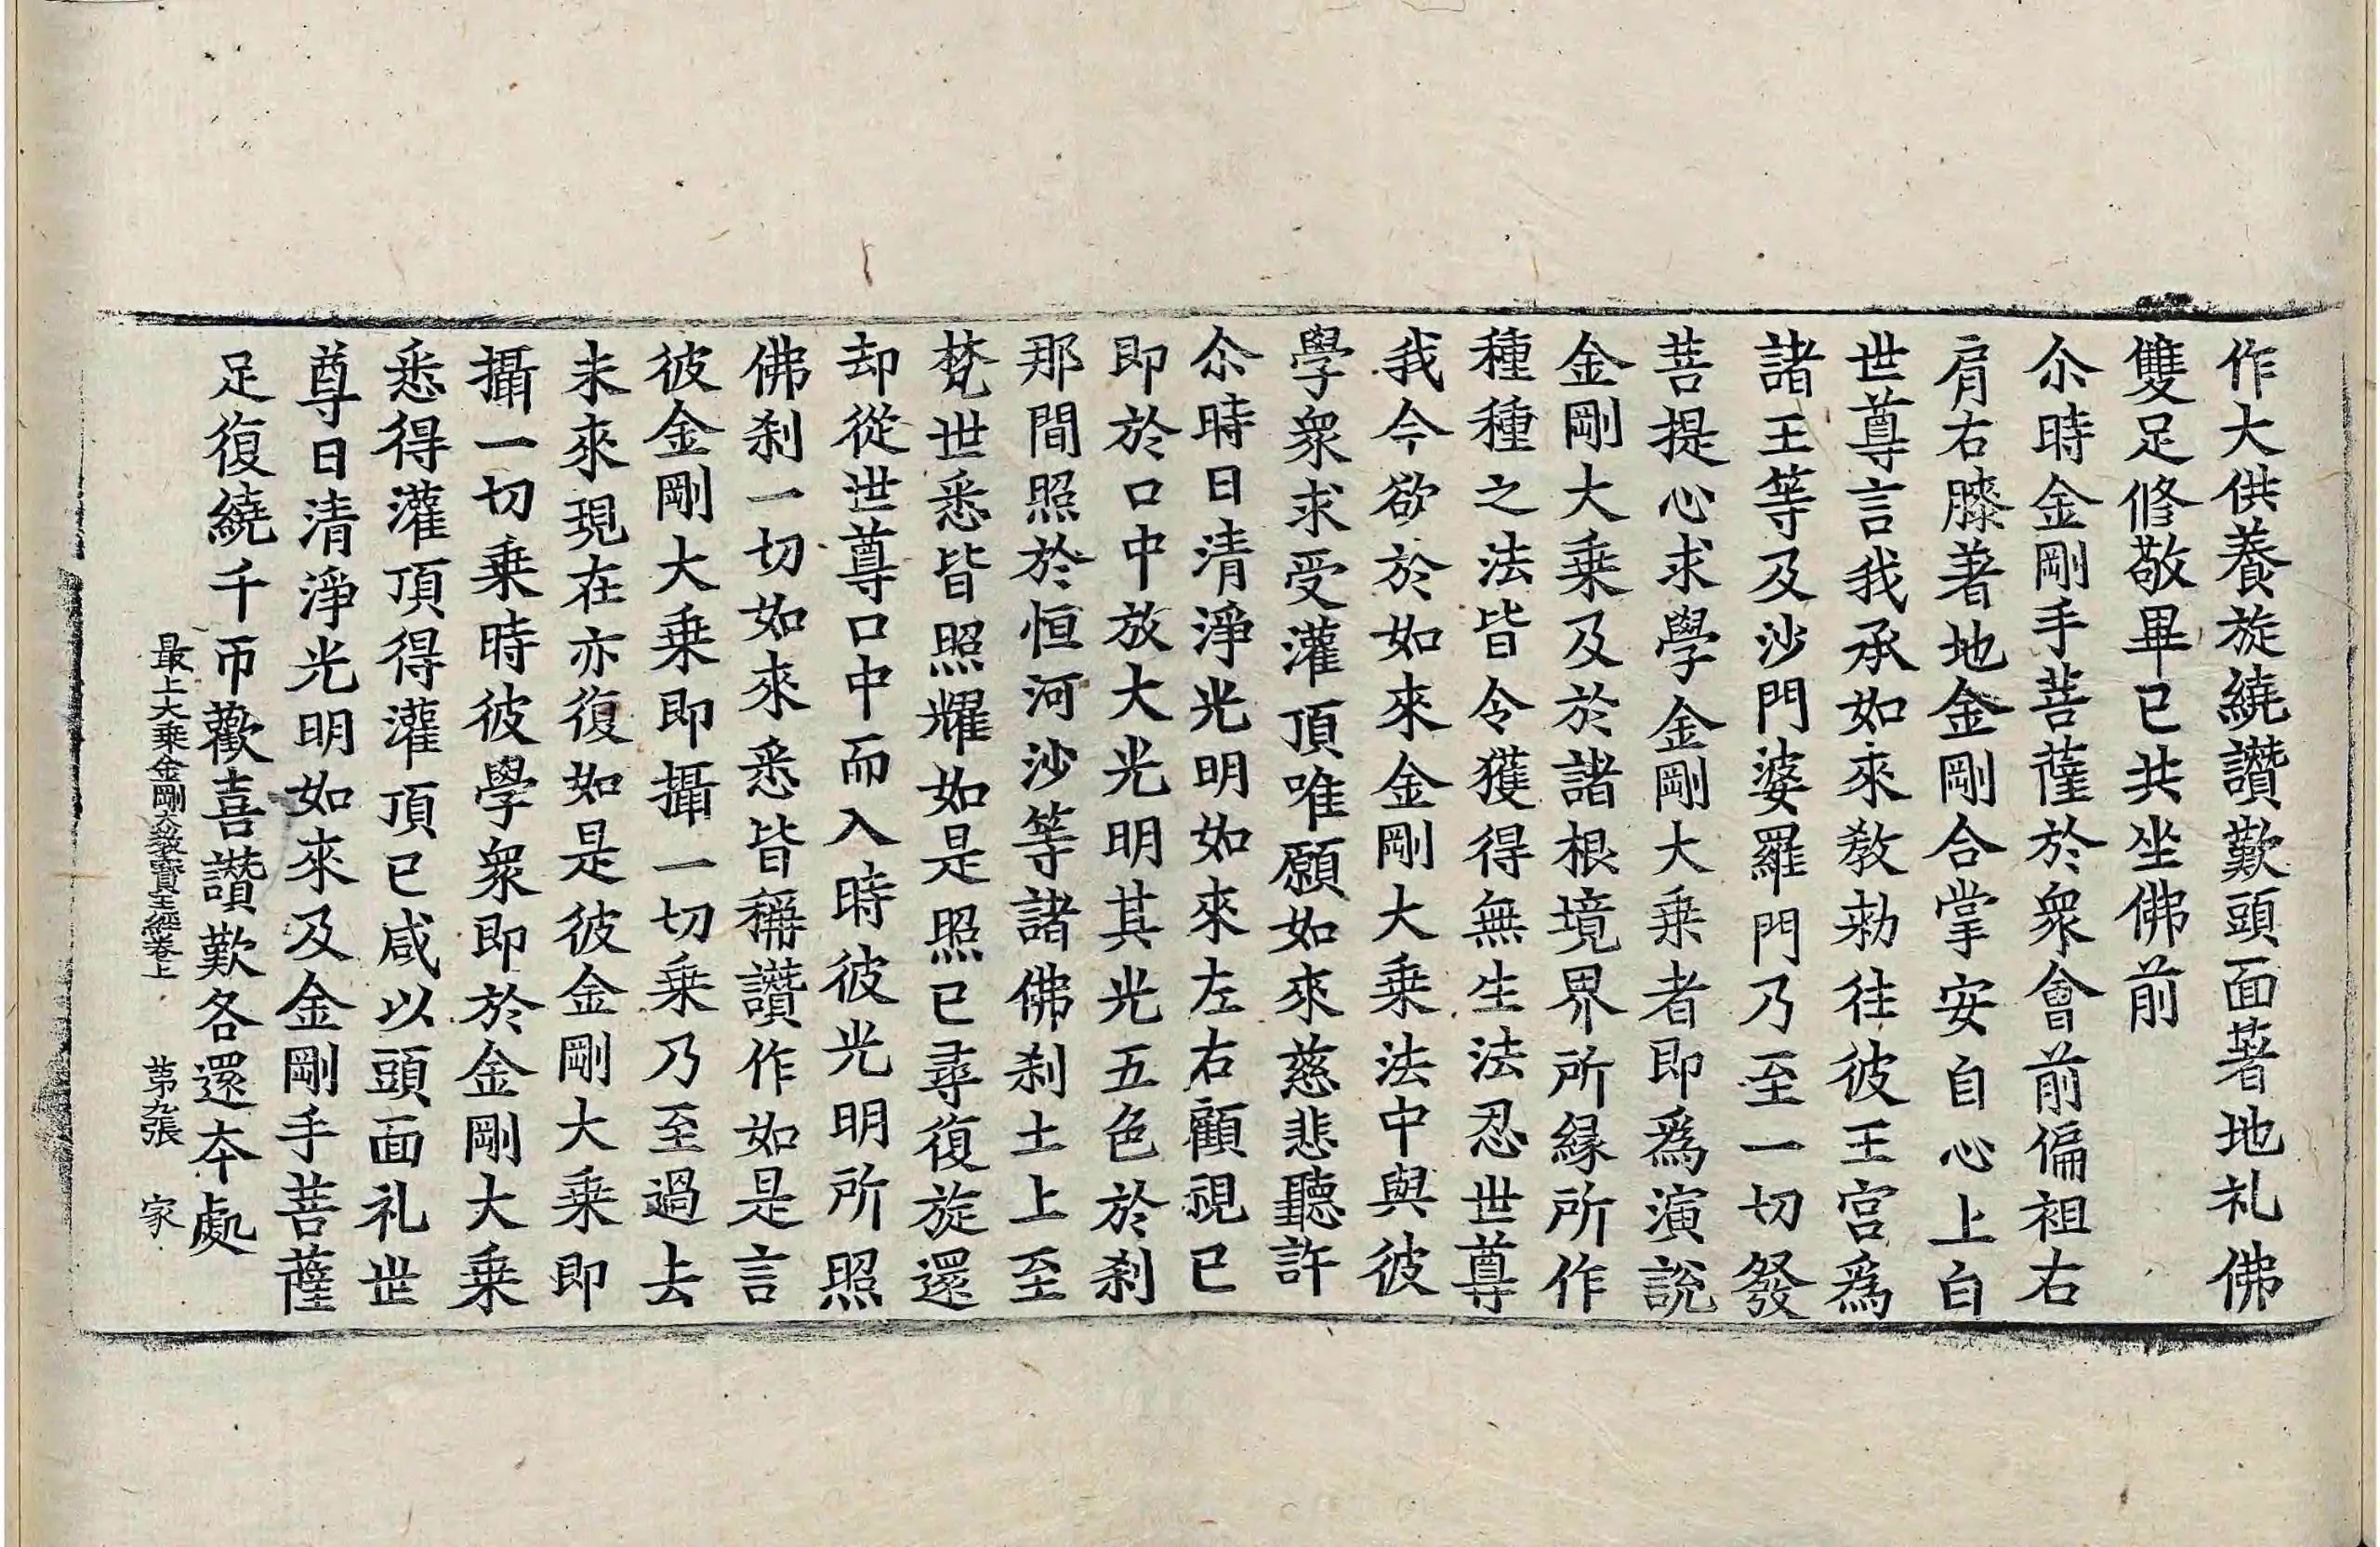 作大供養旋繞讚歎頭面著地礼佛
雙足修敬畢已共坐佛前
尒時金剛手菩薩於衆會前偏袒右
肩右膝著地金剛合掌安自心上白
世尊言我承如來教勑往彼王宮爲
諸王等及沙門婆羅門乃至一切發
菩提心求學金剛大乗者即爲演說
金剛大乗及於諸根境界所縁所作
種種之法皆令獲得無生法忍世尊
我今欲於如來金剛大乗法中與彼
學衆求受灌頂唯願如來慈悲聽許
尒時日清淨光明如來左右顧視已
即於口中放大光明其光五色於刹
那間照於恒河沙等諸佛刹土上至
梵世悉皆照耀如是照已尋復旋還
却從世尊口中而入時彼光明所照
佛刹一切如來悉皆稱讚作如是言
彼金剛大乗即攝一切乗乃至過去
未來現在亦復如是彼金剛大乗即
攝一切乗時彼學衆即於金剛大乗
悉得灌頂得灌頂已咸以頭面礼世
尊日清淨光明如來及金剛手菩薩
足復繞千帀歡喜讚歎各還本處
最上大乗金剛大教寳王經卷上 苐九張 家